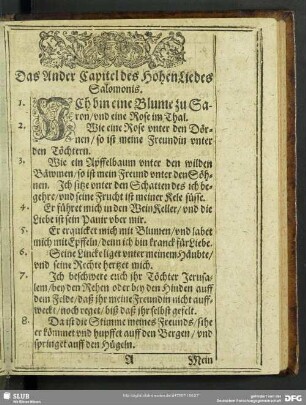 Das Ander Capitel des Hohen Liedes
Salomonis.
1. ICh bin eine Blume zu Sa-
ron/vnd eine Rose im Thal.
2. Wie eine Rose vnter den Dör-
nen/so ist meine Freundin vnter
den Töchtern.
3. Wie ein Apffelbaum vnter den wilden
Bäwmen/so ist mein Freund vnter den Söh-
nen. Ich sitze vnter den Schatten des ich be-
gehre/vnd seine Frucht ist meiner Kele süsse.
4. Er führet mich in den WeinKeller/vnd die
Liebe ist sein Panir vber mir.
5. Er erquicket mich mit Blumen/vnd labet
mich mit Epffeln/denn ich bin kranck für Liebe.
6. Seine Lincke liget vnter meinem Häubte/
vnd seine Rechte hertzet mich.
7. Ich beschwere euch ihr Töchter Jerusa-
lem/bey den Rehen oder bey den Hinden auff
dem Felde/daß ihr meine Freundin nicht auff-
weckt/noch reget/biß daß jhr selbst gefelt.
8. Da ist die Stimme meines Freunds/sihe
er kömmet vnd hupffet auff den Bergen/vnd
springet auff den Hügeln.
A Mein
SLUB
DFG